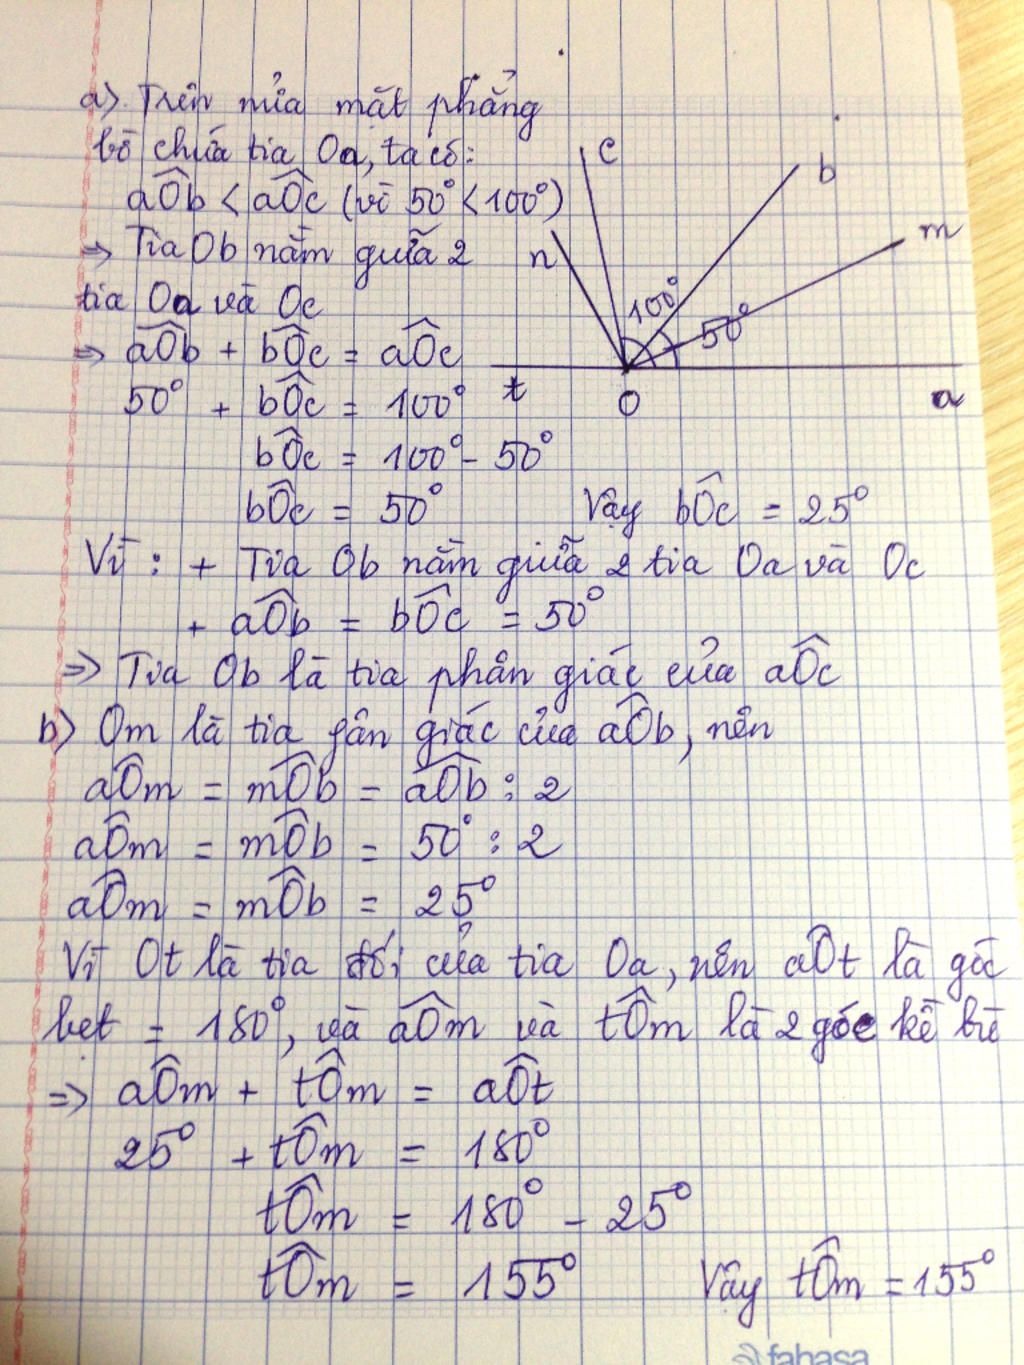 a) Trên nửa mặt phẳng
bờ chứa tia Oa, ta có:
aÔb < aÔc (vì 50° < 100°)
=> Tia Ob nằm giữa 2
tia Oa và Oc
=> aÔb + bÔc = aÔc
50° + bÔc = 100°
bÔc = 100° - 50°
bÔc = 50°
Vậy bÔc = 25°
c
b
m
n
100°
50°
t
O
a
Vì : + Tia Ob nằm giữa 2 tia Oa và Oc
+ aÔb = bÔc = 50°
=> Tia Ob là tia phân giác của aÔc
b) Om là tia gân giác của aÔb, nên
aÔm = mÔb = aÔb : 2
aÔm = mÔb = 50° : 2
aÔm = mÔb = 25°
Vì Ot là tia đối của tia Oa, nên aÔt là góc
bẹt = 180°, và aÔm và tÔm là 2 góc kề bù
=> aÔm + tÔm = aÔt
25° + tÔm = 180°
tÔm = 180° - 25°
tÔm = 155° Vậy tÔm = 155°
fahasa